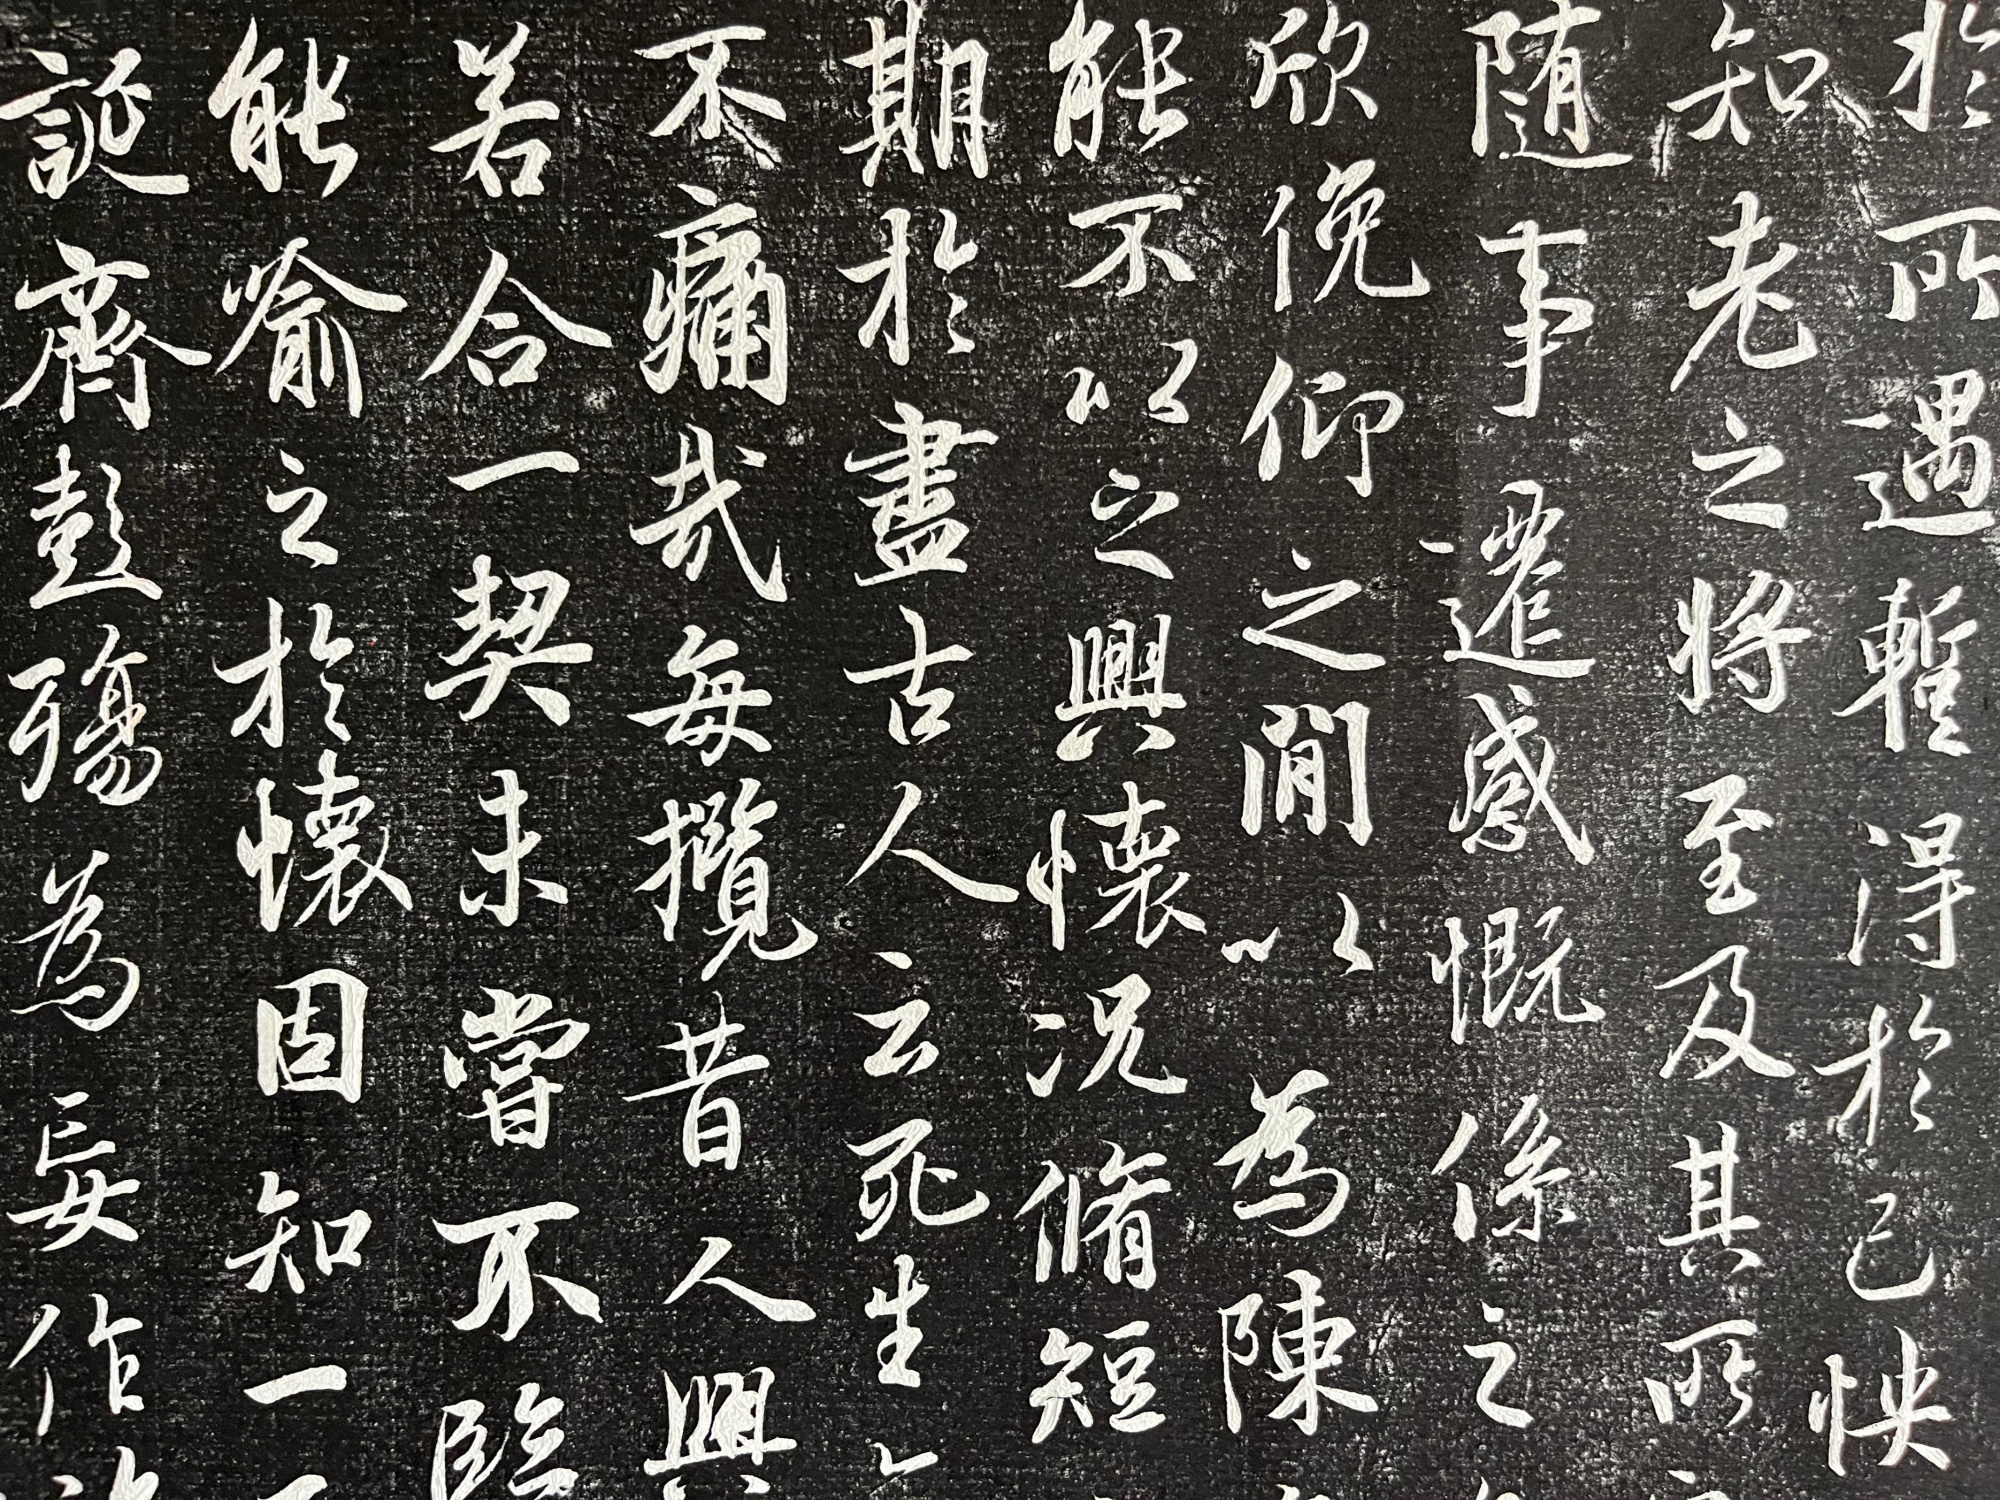 於所遇暫得於己怏
知老之將至及其所
随事遷感慨係之
欣俛仰之閒以為陳
能不以之興懷況脩短
期於盡古人云死生
不痛哉每攬昔人興
若合一契未嘗不臨
能喻之於懷固知一
誕齊彭殤為妄作